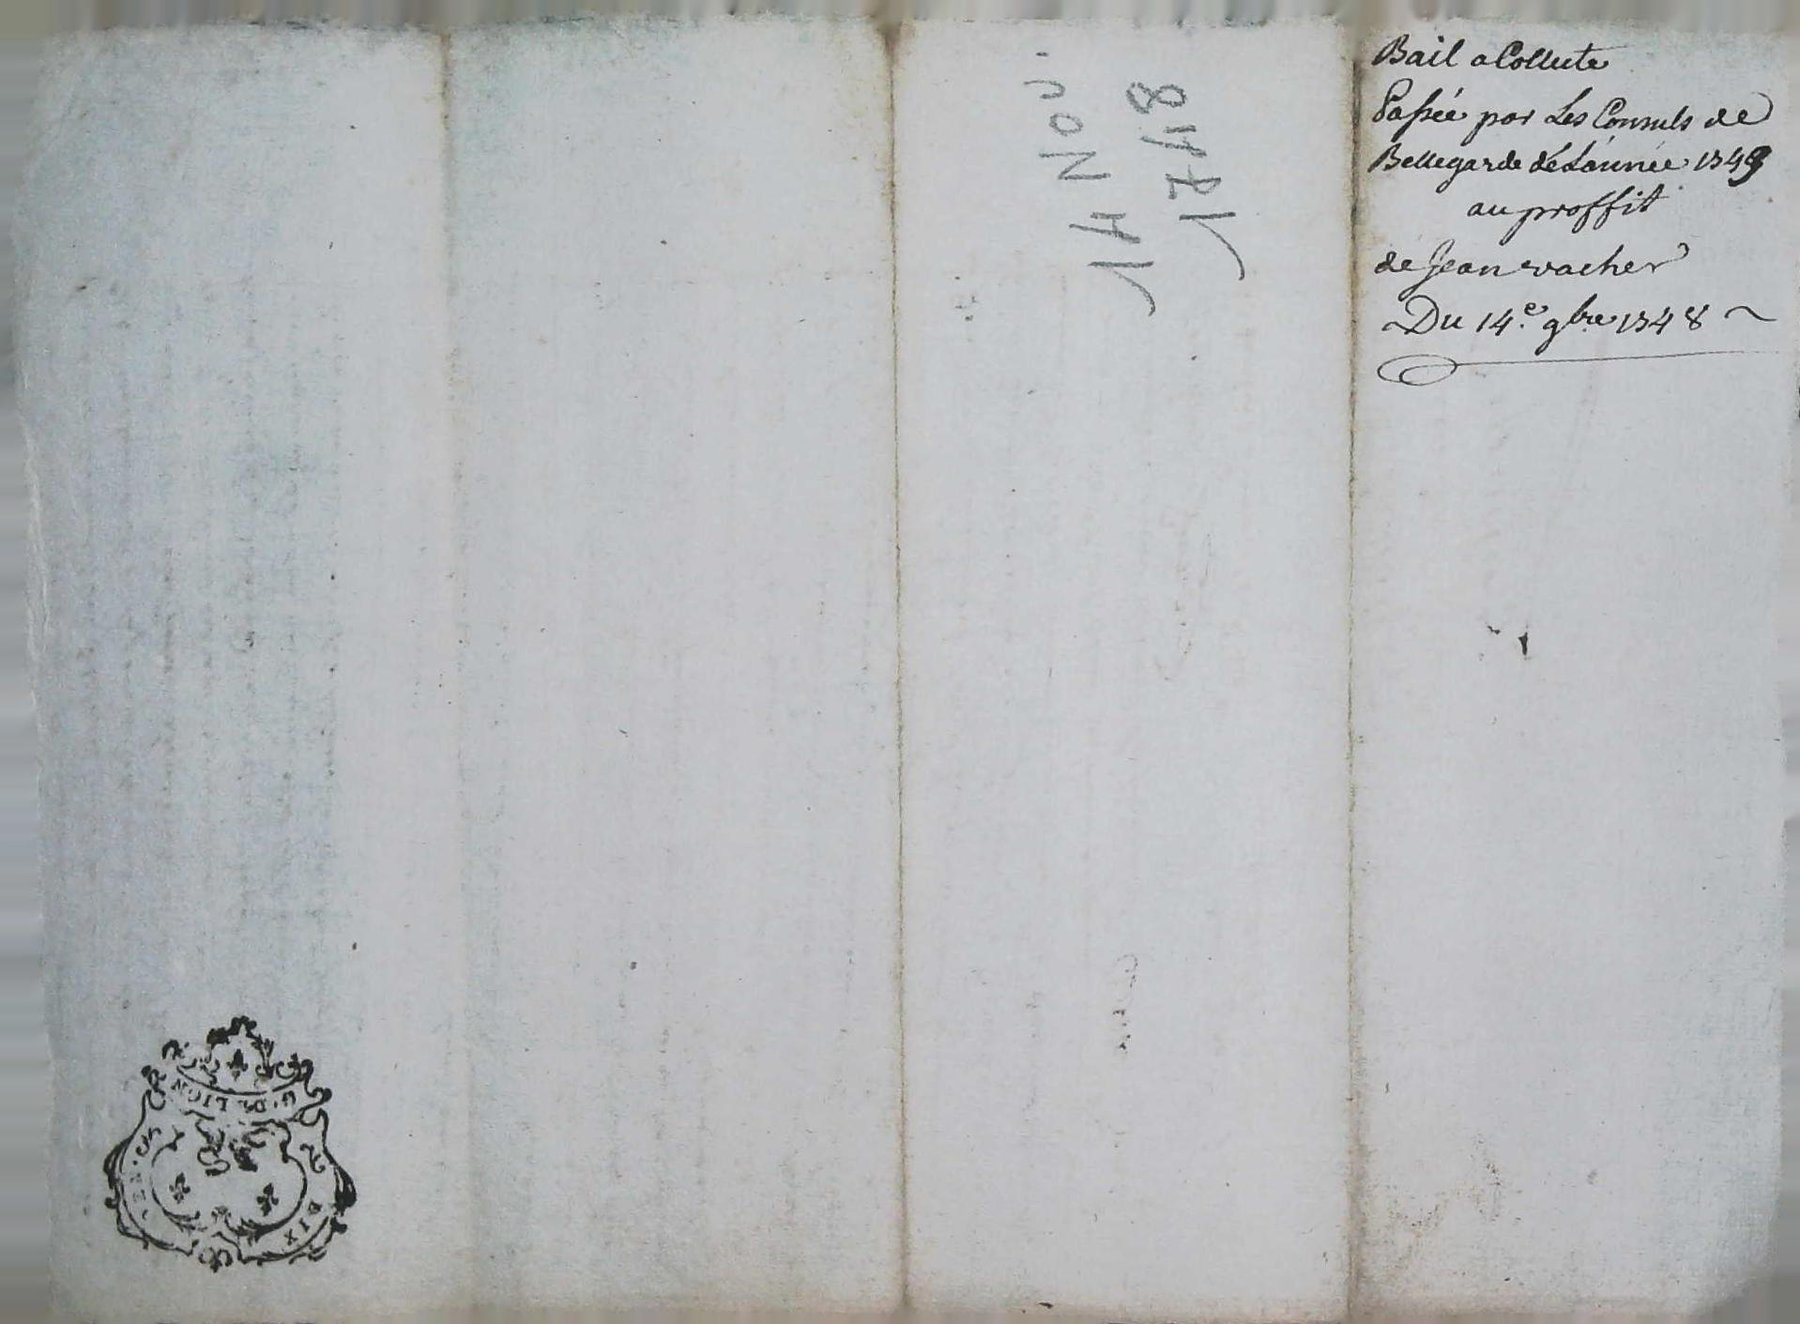 Bail a Collecte
Passée par Les Consuls de
Bellegarde de L'année 1749
au proffit
de Jean vacher
Du 14.e 9bre 1748
14 Nov.
1748
G. DE LION
DIX